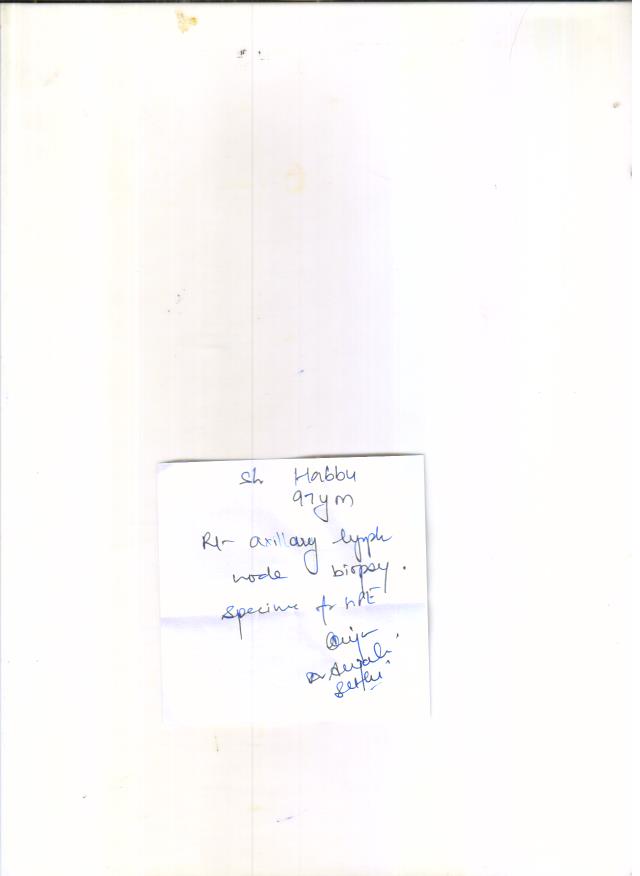 Sh Habbu
97y m
Rt- axillary lymph
node biopsy.
specime for HPE
Dr Anjali
Sethi